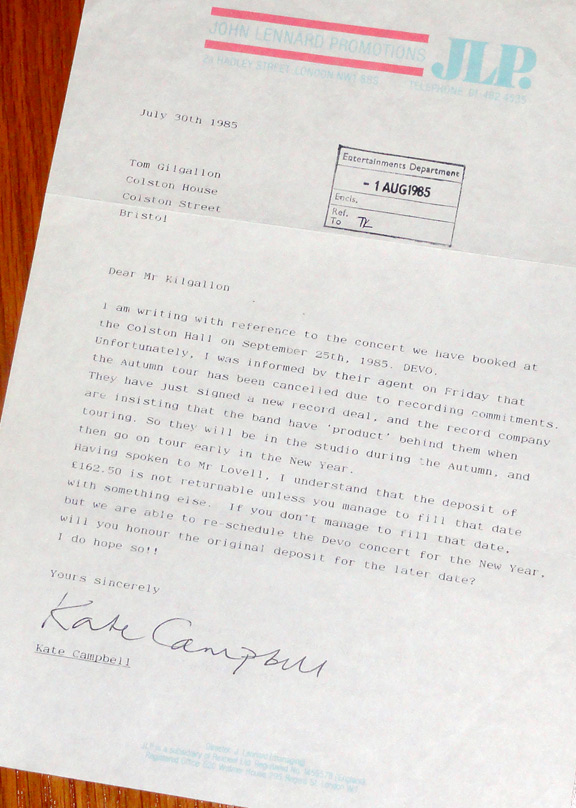 JOHN LENNARD PROMOTIONS
JLP.
RADLEY STREET, LONDON NW1
TELEPHONE 01-482 4535
July 30th 1985
Entertainments Department
- 1 AUG 1985
Encls.
Ref.
To TK
Tom Gilgallon
Colston House
Colston Street
Bristol
Dear Mr Kilgallon
I am writing with reference to the concert we have booked at
the Colston Hall on September 25th, 1985. DEVO.
Unfortunately, I was informed by their agent on Friday that
the Autumn tour has been cancelled due to recording commitments.
They have just signed a new record deal, and the record company
are insisting that the band have 'product' behind them when
touring. So they will be in the studio during the Autumn, and
then go on tour early in the New Year.
Having spoken to Mr Lovell, I understand that the deposit of
£162.50 is not returnable unless you manage to fill that date
with something else. If you don't manage to fill that date,
but we are able to re-schedule the Devo concert for the New Year,
will you honour the original deposit for the later date?
I do hope so!!
Yours sincerely
Kate Campbell
Kate Campbell
Director J. Lennard (Managing)
JLP is a subsidiary of
Registered Office